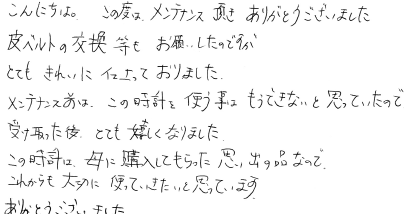 こんにちは。この度は、メンテナンス頂き ありがとうございました
皮ベルトの交換 等も お願いしたのですが
とても きれいに 仕上って おりました。
メンテナンス前は、この時計を 使う事は もうできないと 思っていたので
受け取った後、とても 嬉しくなりました。
この時計は、母に 購入してもらった 思い出の品なので、
これからも 大切に 使っていきたいと思っています
ありがとうございました